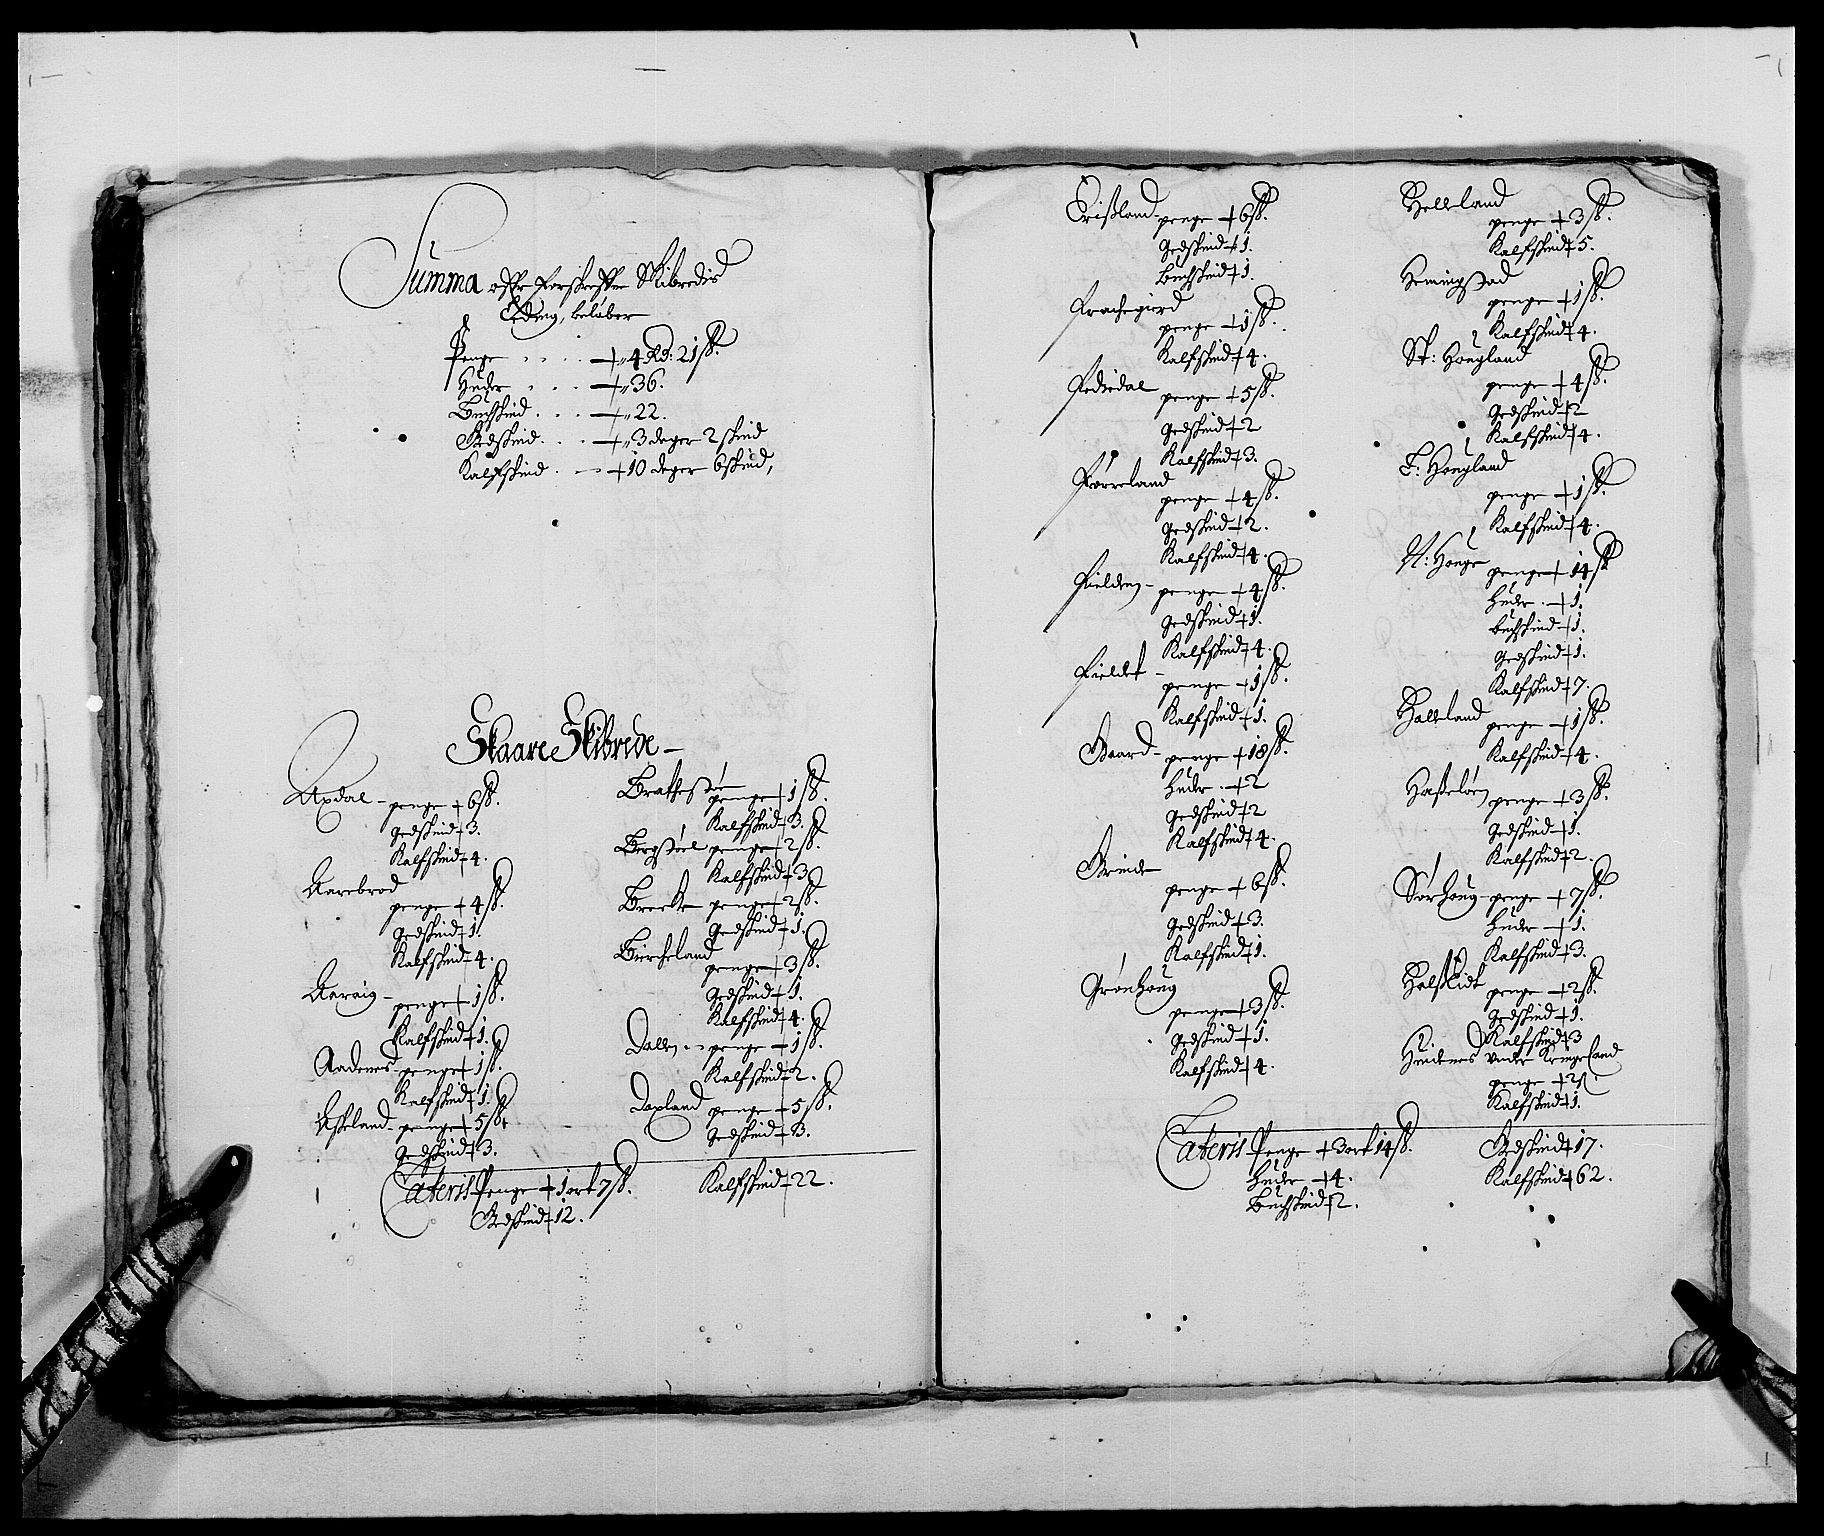 Summa offr forskreffne Skibredis
Leding, beløber
Penge - - - - 4 Rd: 21 ß.
Huder - - - 36.
Buchskind . . . 22.
Gedskind . . . 3 deger 2 skind
Kalfskind . - 10 deger 6 skind,
Skaare Skibrede
Axdal - penge 6 ß.
Gedskind 3.
Kalfskind 4.
Aarebrod
penge 4 ß.
Gedskind 1.
Kalfskind 4.
Aarvig -
penge 1 ß.
Kalfskind 1.
Aadenes penge 1 ß.
Kalfskind 1.
Askeland - penge 5 ß.
Gedskind 3.
Brattestøe
penge 1 ß.
Kalfskind 3.
Bergstøel penge 2 ß.
Kalfskind 3.
Brecke penge 2 ß.
Gedskind 1.
Bircheland
penge 3 ß.
Gedskind 1.
Kalfskind 4.
Dallen - penge 1 ß.
Kalfskind 2.
Doxland penge 5 ß.
Gedskind 3.
Lateris Penge 1 ort 7 ß.
Gedskind 12.
Kalfskind 22.
Erißland - penge 6 ß.
Gedskind 1.
Buchskind 1.
Frachegierd
penge 1 ß.
Kalfskind 4.
Fedtedal
penge 5 ß.
Gedskind 2
Kalfskind 3.
Førreland
penge 4 ß.
Gedskind 2.
Kalfskind 4.
Fielden - penge 4 ß.
Gedskind 1.
Kalfskind 4.
Fieldet -
penge 1 ß.
Kalfskind 1.
Gaard - penge 18 ß.
Huder . 2
Gedskind 2
Kalfskind 4.
Grinde
penge 6 ß.
Gedskind 3.
Kalfskind 1.
Grønhoug
penge 3 ß.
Gedskind 1.
Kalfskind 4.
Helleland
penge 3 ß.
Kalfskind 5.
Hemingstad
penge 1 ß.
Kalfskind 4.
St: Hougland
penge 4 ß.
Gedskind 2
Kalfskind 4.
L: Hougland
penge 1 ß.
Kalfskind 4.
N: Houge penge 14 ß
Huder . 1.
Buchskind 1.
Gedskind 1.
Kalfskind 7.
Halleland penge 1 ß.
Kalfskind 4.
Haßeløen penge 3 ß.
Gedskind 1.
Kalfskind 2.
Sørhoug penge 7 ß.
Huder 1.
Kalfskind 3.
Helskidt
penge 2 ß.
Gedskind 1.
Kalfskind 3
Hindenes under Kringeland
penge 2 ß
Kalfskind 1.
Lateris Penge 3 ort 14 ß.
Huder 4.
Buchskind 2.
Gedskind 17.
Kalfskind 62.